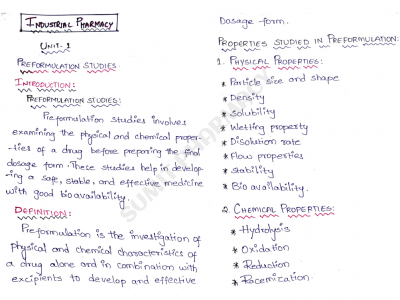 INDUSTRIAL PHARMACY
UNIT-1
PREFORMULATION STUDIES
INTRODUCTION:
PREFORMULATION STUDIES:
Preformulation studies involves
examining the physical and chemical proper-
-ties of a drug before preparing the final
dosage form. These studies help in develop-
-ing a safe, stable, and effective medicine
with good bioavailability.
DEFINITION:
Preformulation is the investigation of
physical and chemical characteristics of
a drug alone and in combination with
excipients to develop and effective
Dosage form.
PROPERTIES STUDIED IN PREFORMULATION:
1. PHYSICAL PROPERTIES:
* Particle size and shape
* Density
* Solubility
* Wetting property
* Disolution rate
* Flow properties
* Stability
* Bioavailability.
2. CHEMICAL PROPERTIES:
* Hydrolysis
* Oxidation
* Reduction
* Racemization.